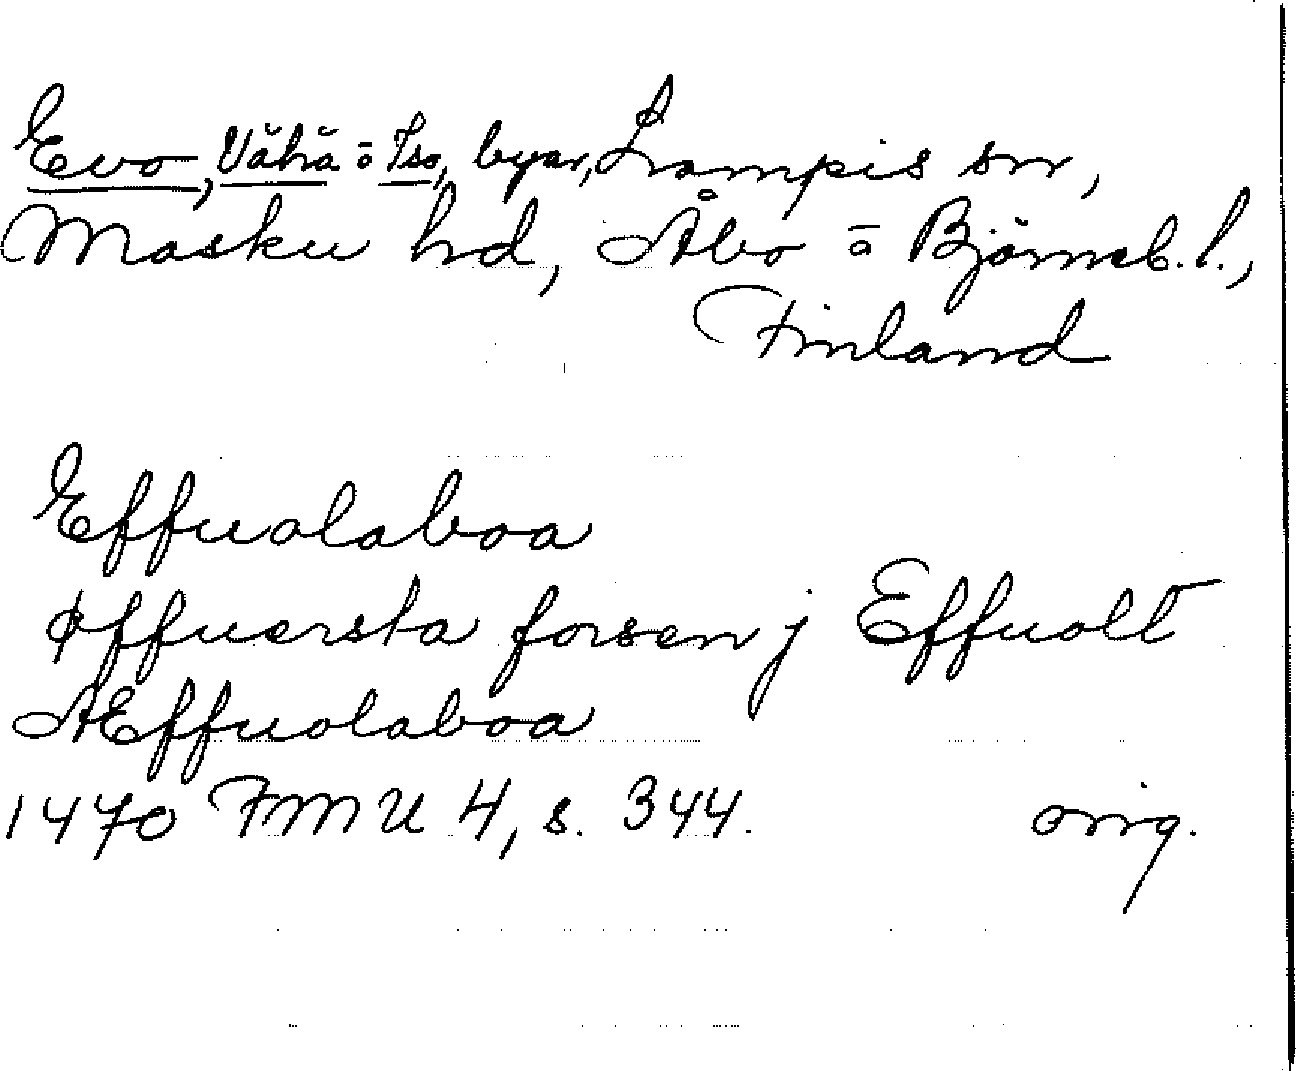 Evo, Vähä- o Iso, byar, Lampis sn,
Masku hd, Åbo o Björneb. l.,
Finland
Effuolaboa
øffuersta forsen j Effuolt
ÆEffuolaboa
1470 FMU 4, s. 344. orig.